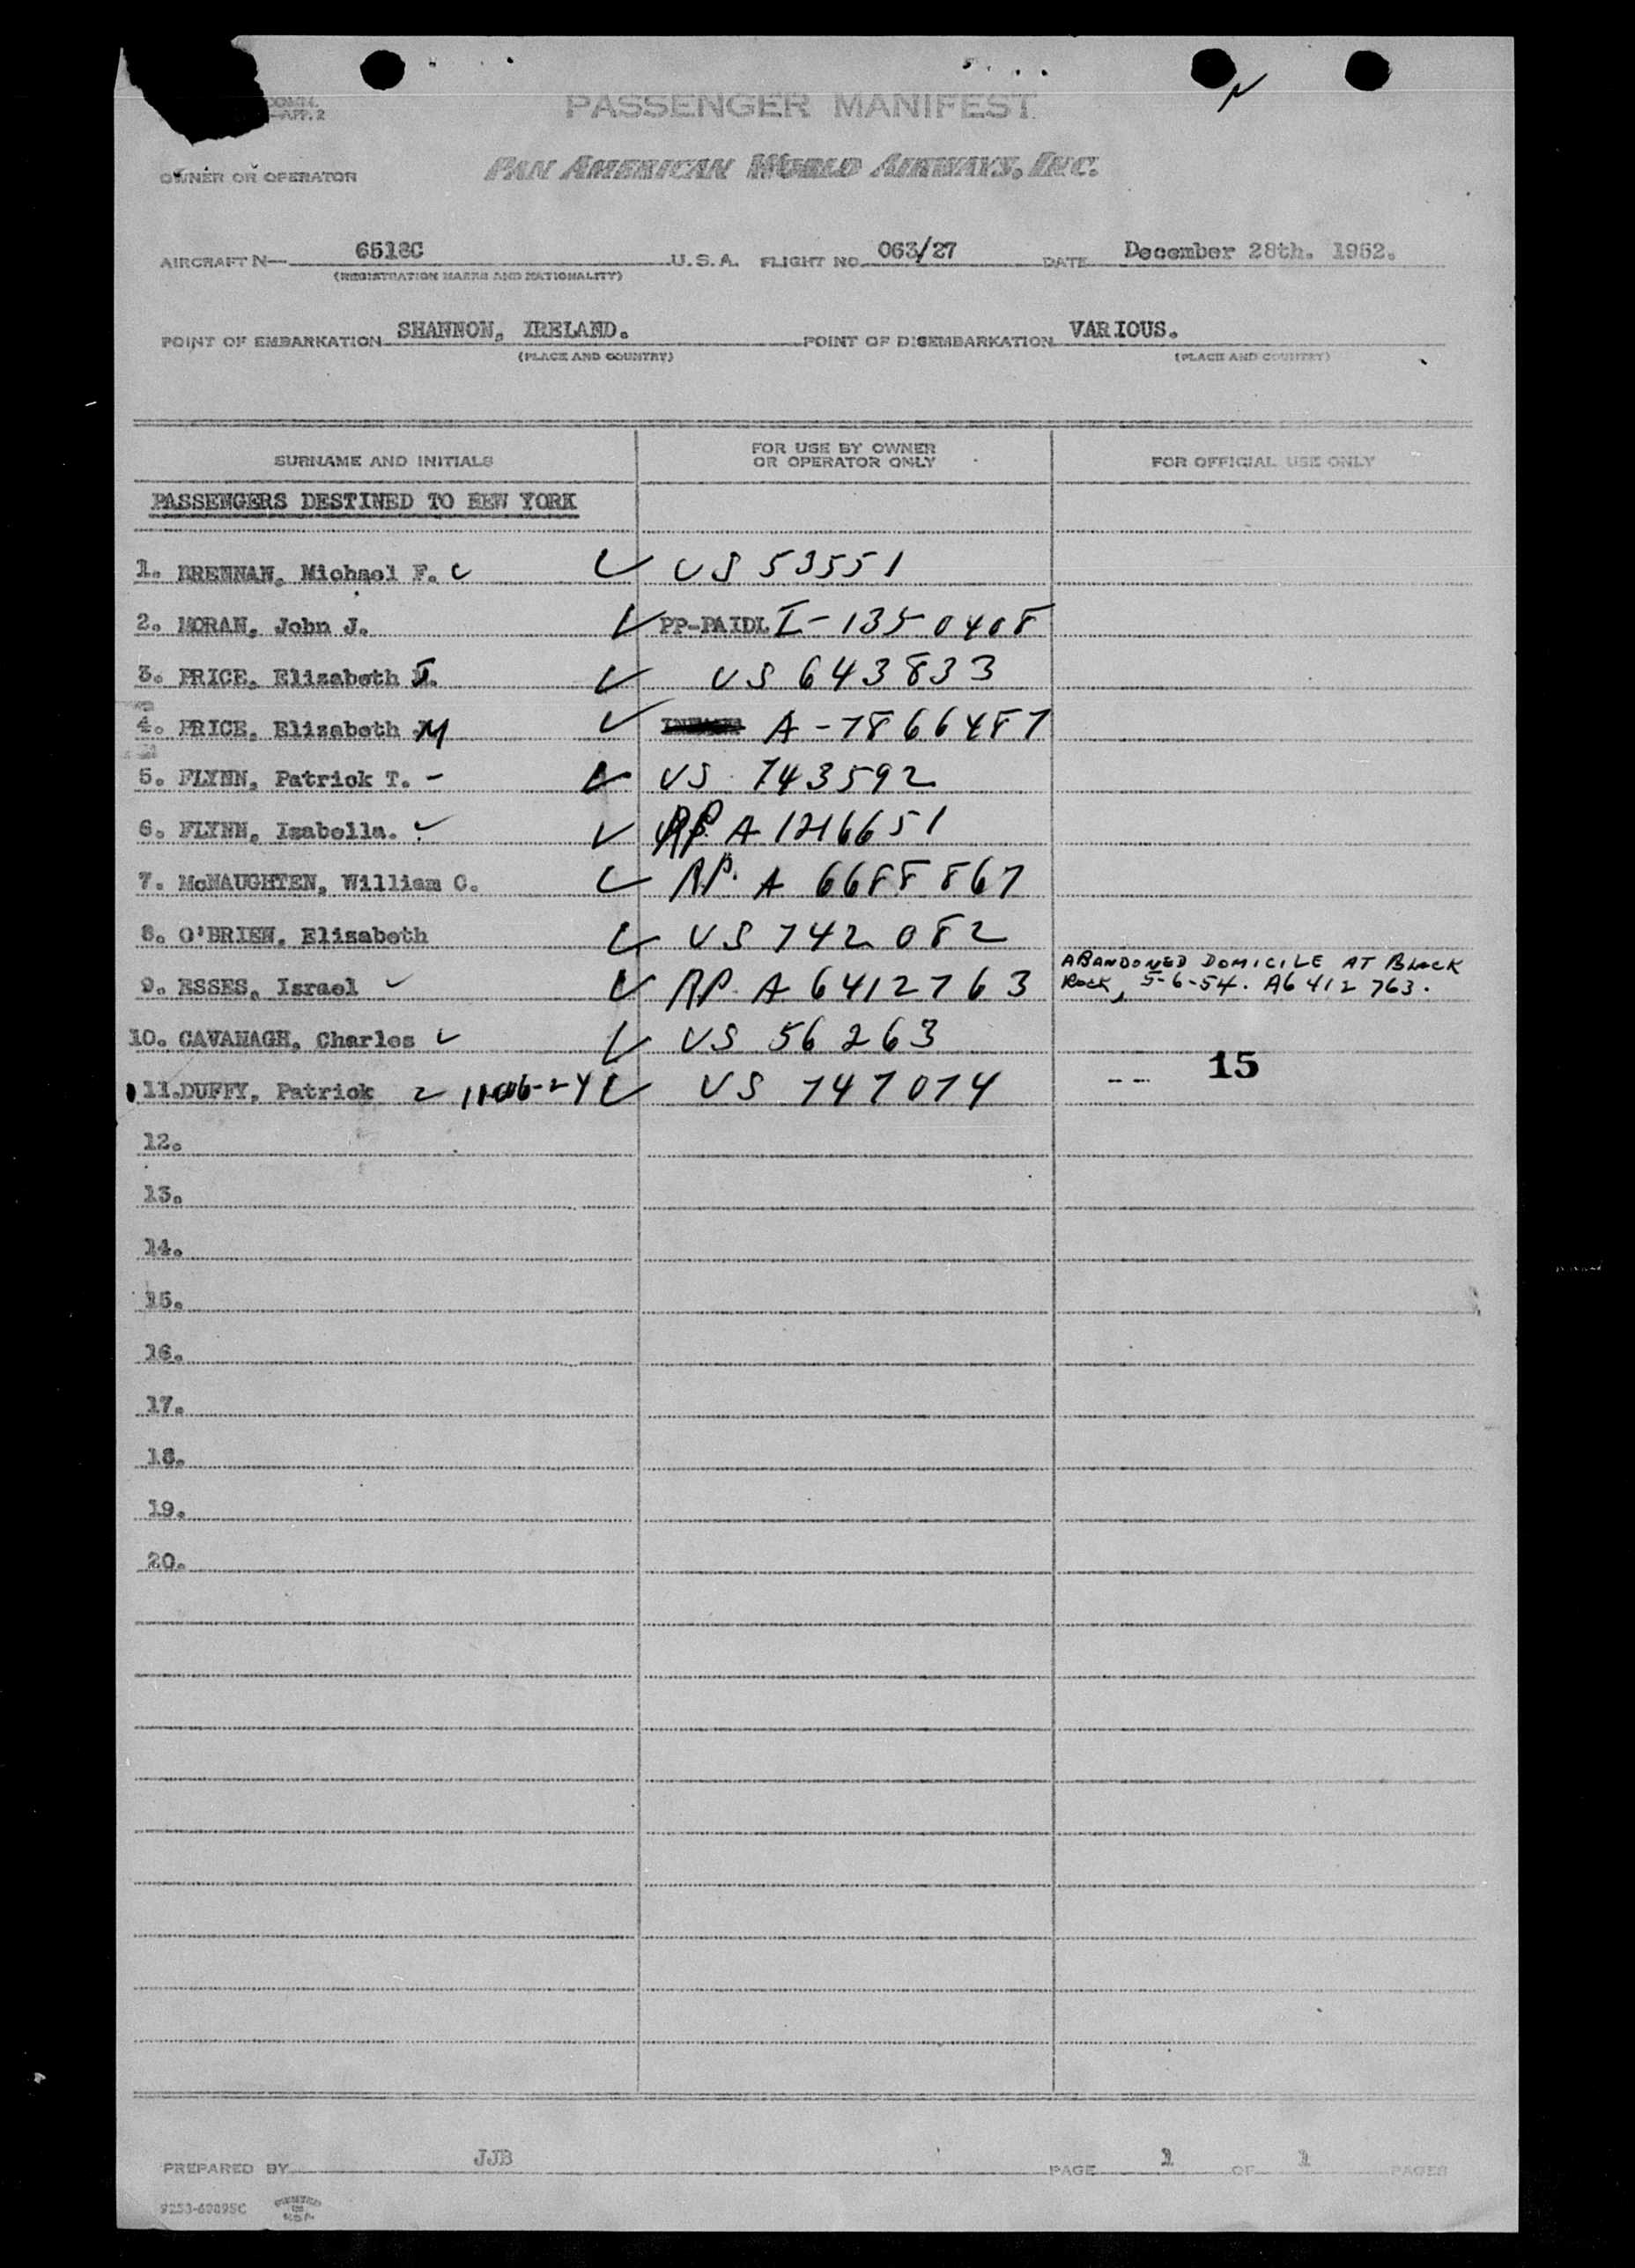 COMM.
APP. 2
PASSENGER MANIFEST
OWNER OR OPERATOR PAN AMERICAN WORLD AIRWAYS, INC.
AIRCRAFT N— 6518C U.S.A. FLIGHT NO. 063/27 DATE December 28th. 1952.
(REGISTRATION MARKS AND NATIONALITY)
POINT OF EMBARKATION SHANNON, IRELAND. POINT OF DISEMBARKATION VARIOUS.
(PLACE AND COUNTRY) (PLACE AND COUNTRY)
SURNAME AND INITIALS FOR USE BY OWNER OR OPERATOR ONLY FOR OFFICIAL USE ONLY
PASSENGERS DESTINED TO NEW YORK
1. BRENNAN, Michael F. ✓ ✓ US 53551
2. MORAN, John J. ✓ PP-PAIDL I-1350408
3. PRICE, Elizabeth J. ✓ US 643833
4. PRICE, Elizabeth M ✓ A-7866487
5. FLYNN, Patrick T. - ✓ US 743592
6. FLYNN, Isabella. ✓ ✓ RP A 1216651
7. McNAUGHTEN, William C. ✓ RP. A 6688867
8. O'BRIEN, Elizabeth ✓ US 742082
9. ESSES, Israel ✓ ✓ RP. A 6412763 ABANDONED DOMICILE AT BLACK
ROCK, 5-6-54. A6 412 763.
10. CAVANAGH, Charles ✓ ✓ US 56263
11. DUFFY, Patrick ✓ US 747074 -- 15
12.
13.
14.
15.
16.
17.
18.
19.
20.
PREPARED BY JJB PAGE 1 OF 1 PAGES
PRINTED IN U.S.A.